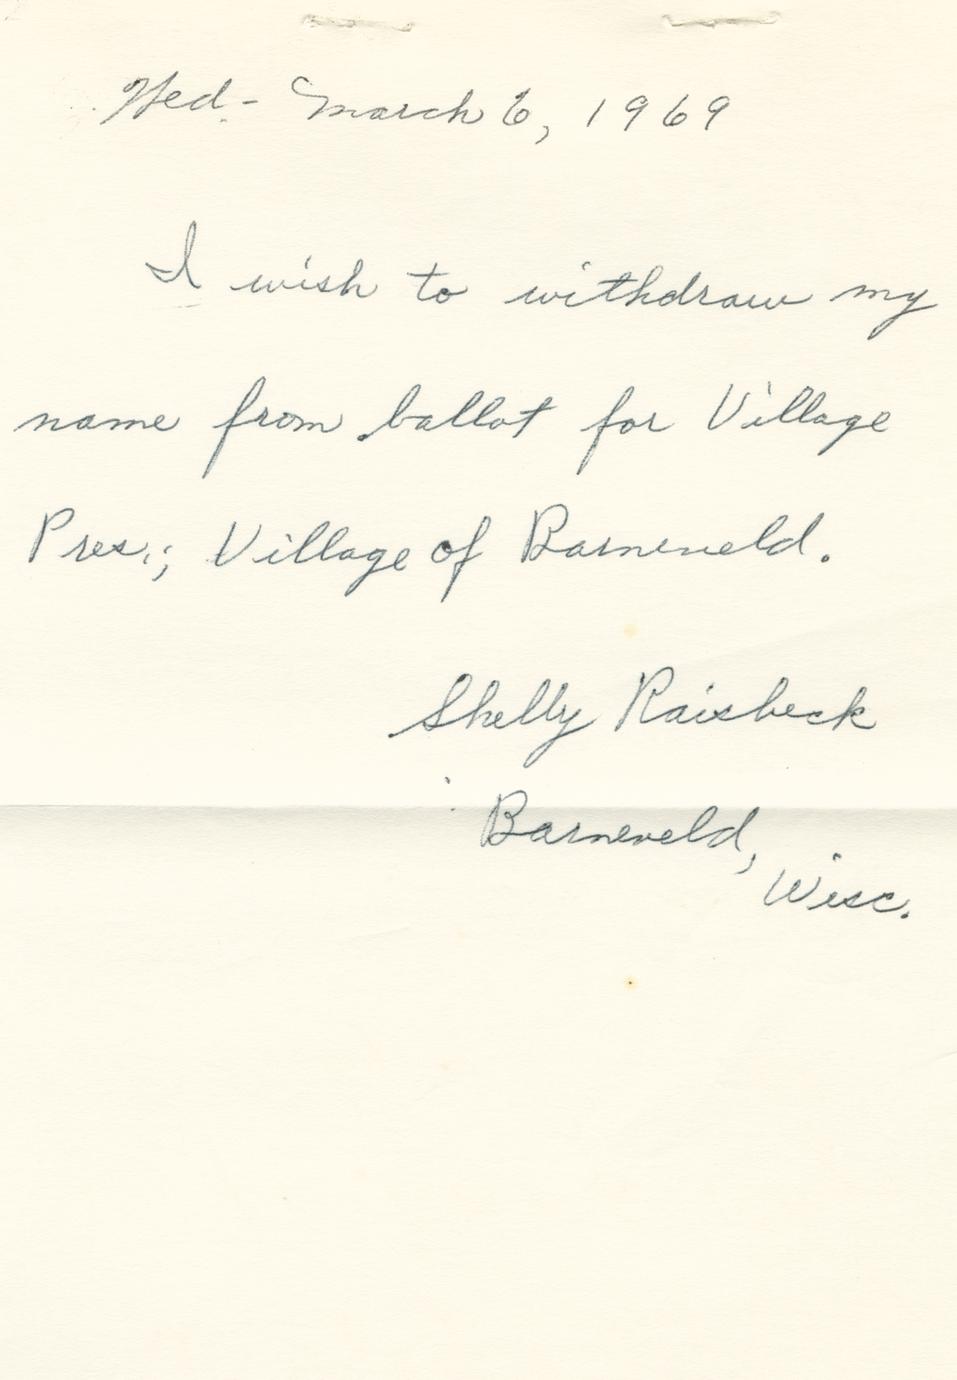 Wed- March 6, 1969
I wish to withdraw my
name from ballot for Village
Pres.; Village of Barneveld.
Shelly Raisbeck
Barneveld,
Wisc.